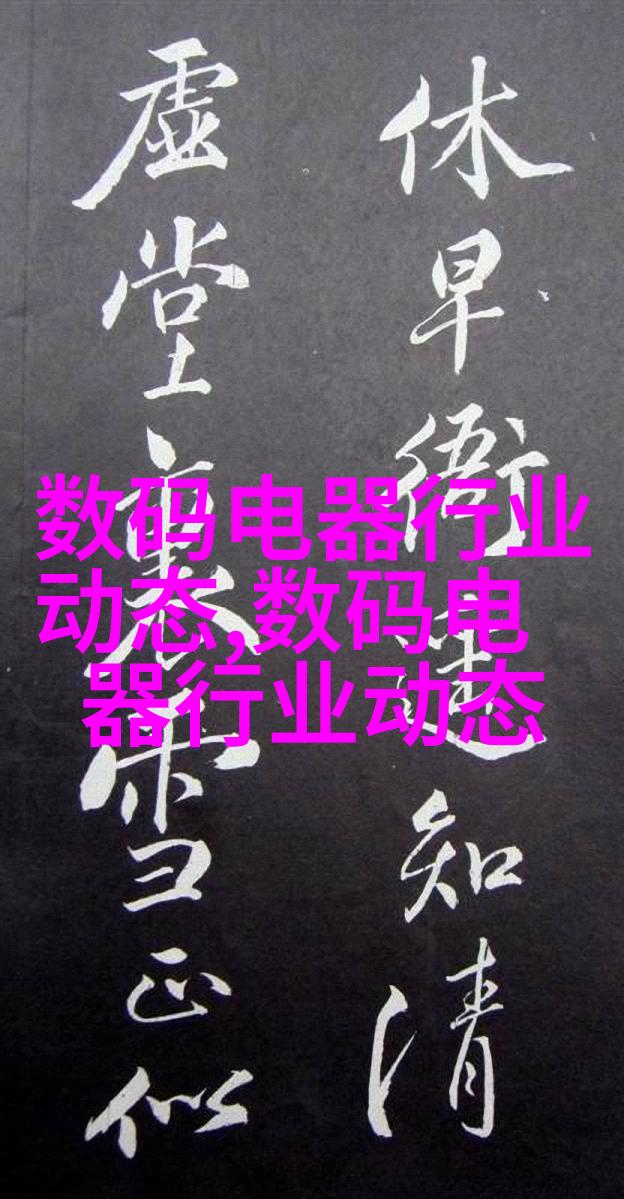 休早衙遥知清
虚堂裏雪正似
数码电器行业
动态,数码电
器行业动态